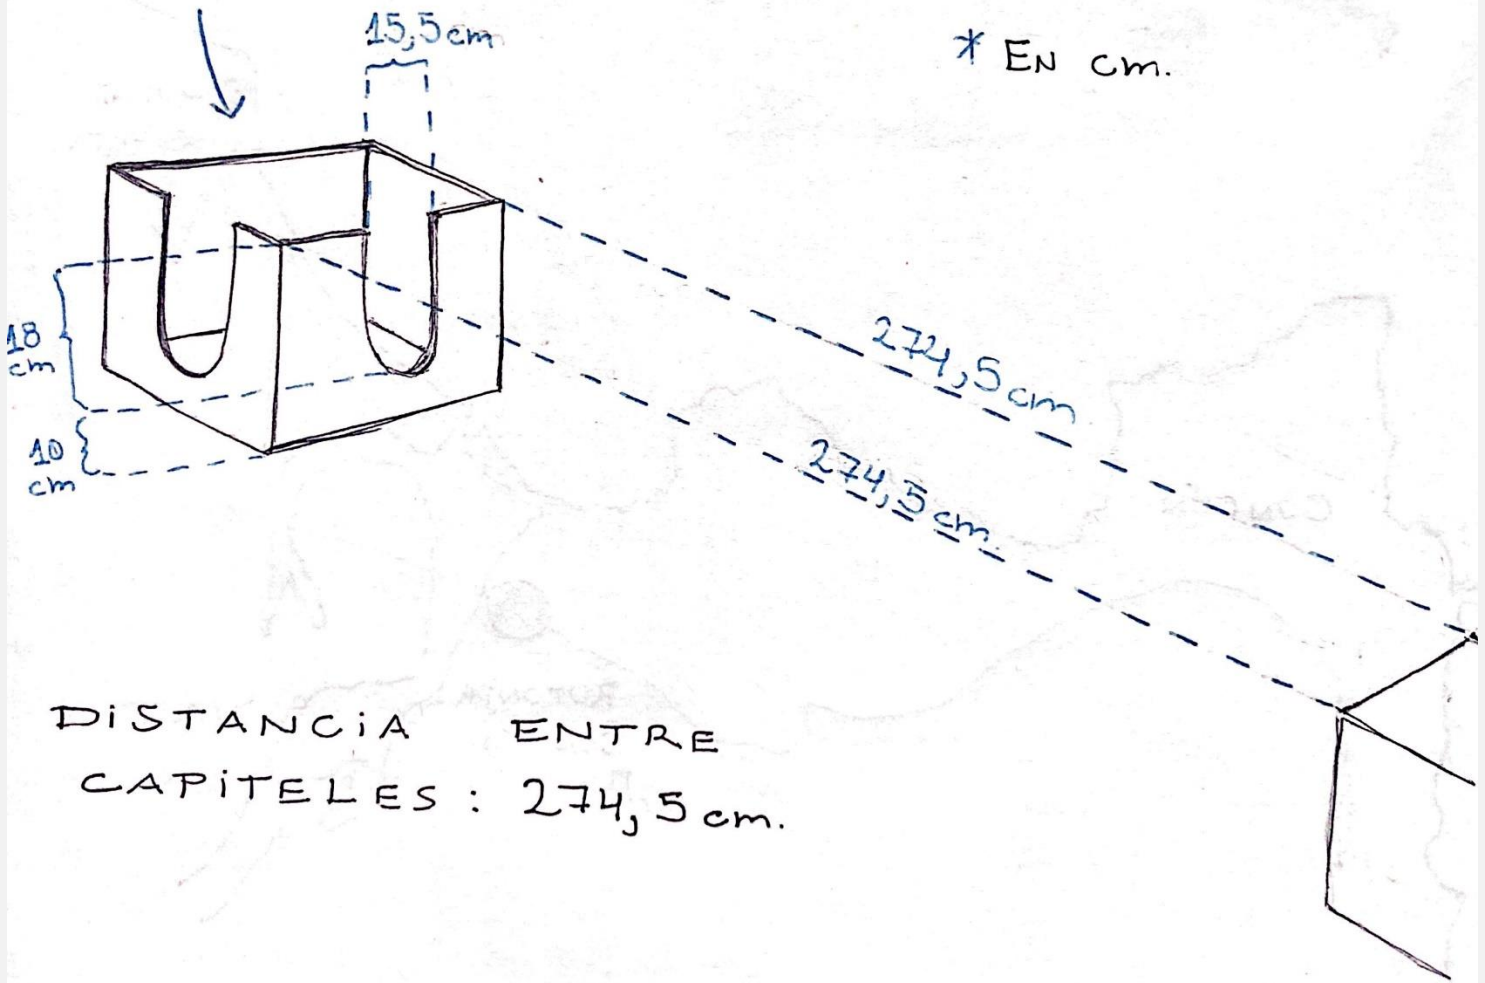 15,5 cm
* EN cm.
18
cm
10
cm
274,5 cm
274,5 cm.
DISTANCIA ENTRE
CAPITELES : 274,5 cm.